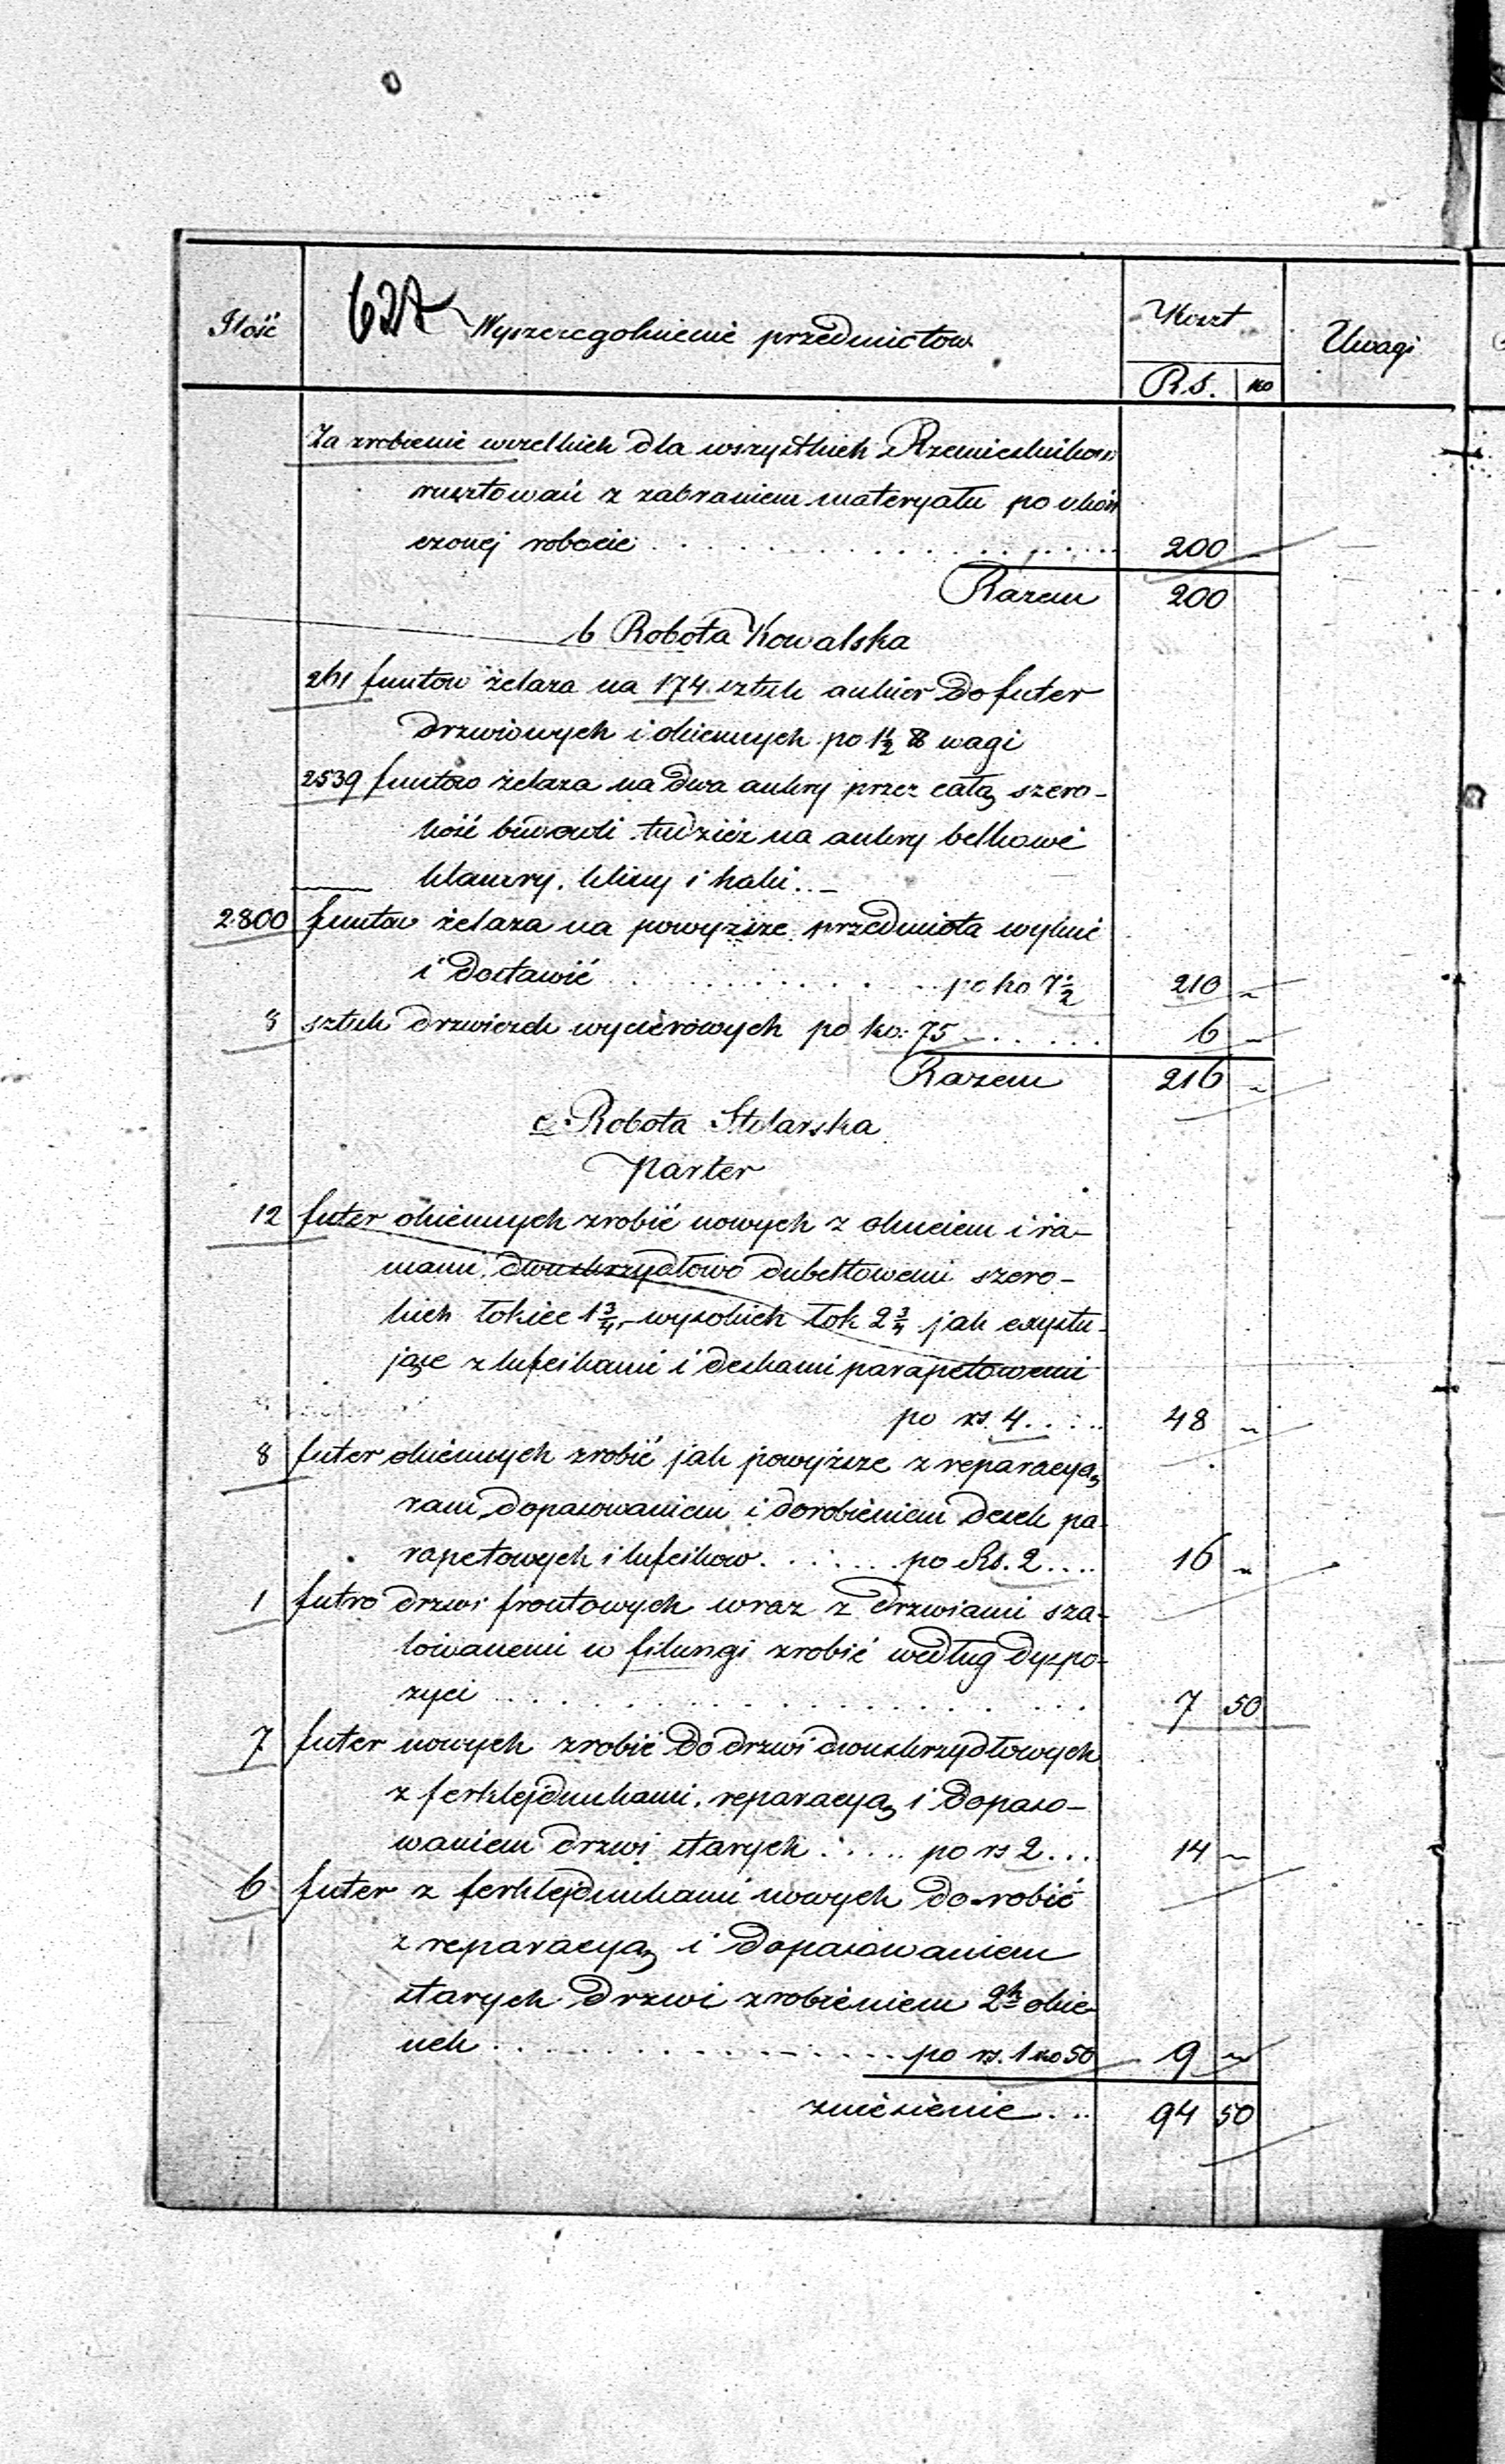 Ilość 627 Wyszczegolnienie przedmiotow Koszt Uwagi
R.S. ko
Za zrobienie wszelkich dla wszystkich Rzemieslnikow
rusztowań z zabraniem materyału po ukoń
czonej robocie . . . 200 -
Razem 200
b Robota Kowalska
261 funtow żelaza na 174 sztuk ankier do futer
drzwiowych i okiennych po 1 1/2 ℔ wagi
2539 funtow żelaza na dwa ankry przez całą szero-
kość budowli tudzież na ankry belkowe
klamry, kliny i haki. -
2800 funtow żelaza na powyższe przedmiota wykuć
i dostawić . . . po ko 7 1/2 210 -
8 sztuk drzwiczek wycierowych po ko: 75 . . . 6 -
Razem 216 -
c. Robota Stolarska
Parter
12 futer okiennych zrobić nowych z okuciem i ra-
mami dwuskrzydłowo dubeltowemi szero-
kich łokiec 1 3/4, wysokich łok 2 3/4 jak exystu-
jące z lufcikami i deskami parapetowemi
po rs. 4 . . . 48 -
8 futer okiennych zrobić jak powyższe z reparacyą
ram, dopasowaniem i dorobieniem desek pa-
rapetowych i lufcikow . . . po Rs. 2 . . . 16 -
1 futro drzwi frontowych wraz z drzwiami sza-
lowanemi w filungi zrobić według dyspo-
zyci . . . 7 50
7 futer nowych zrobić do drzwi dwuskrzydłowych
z ferklejdunkami, reparacyą i dopaso-
waniem drzwi starych . . . po rs 2 . . . 14 -
6 futer z ferklejdunkami nowych do-robić
z reparacyą i dopasowaniem
starych drzwi zrobieniem 2h okie
nek . . . po rs. 1 ko 50 9 -
zniesienie . . . 94 50